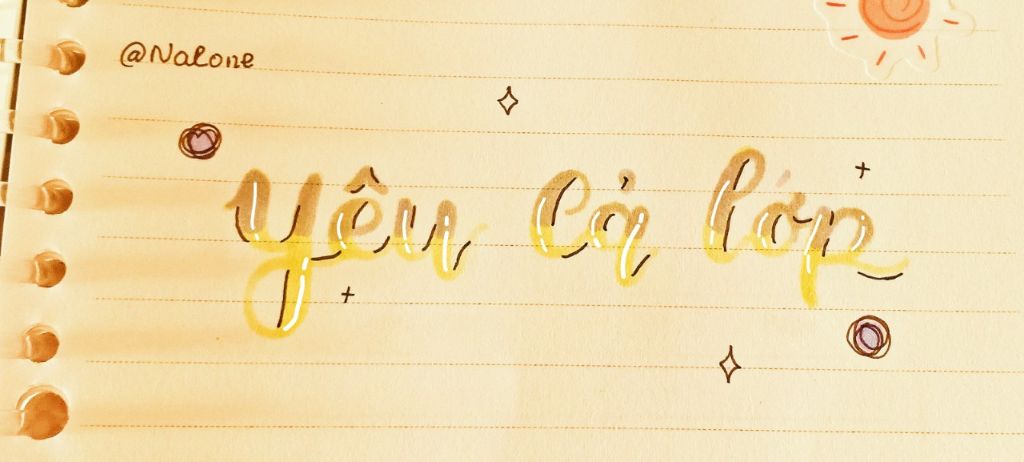 @Nalone
yêu cả lớp